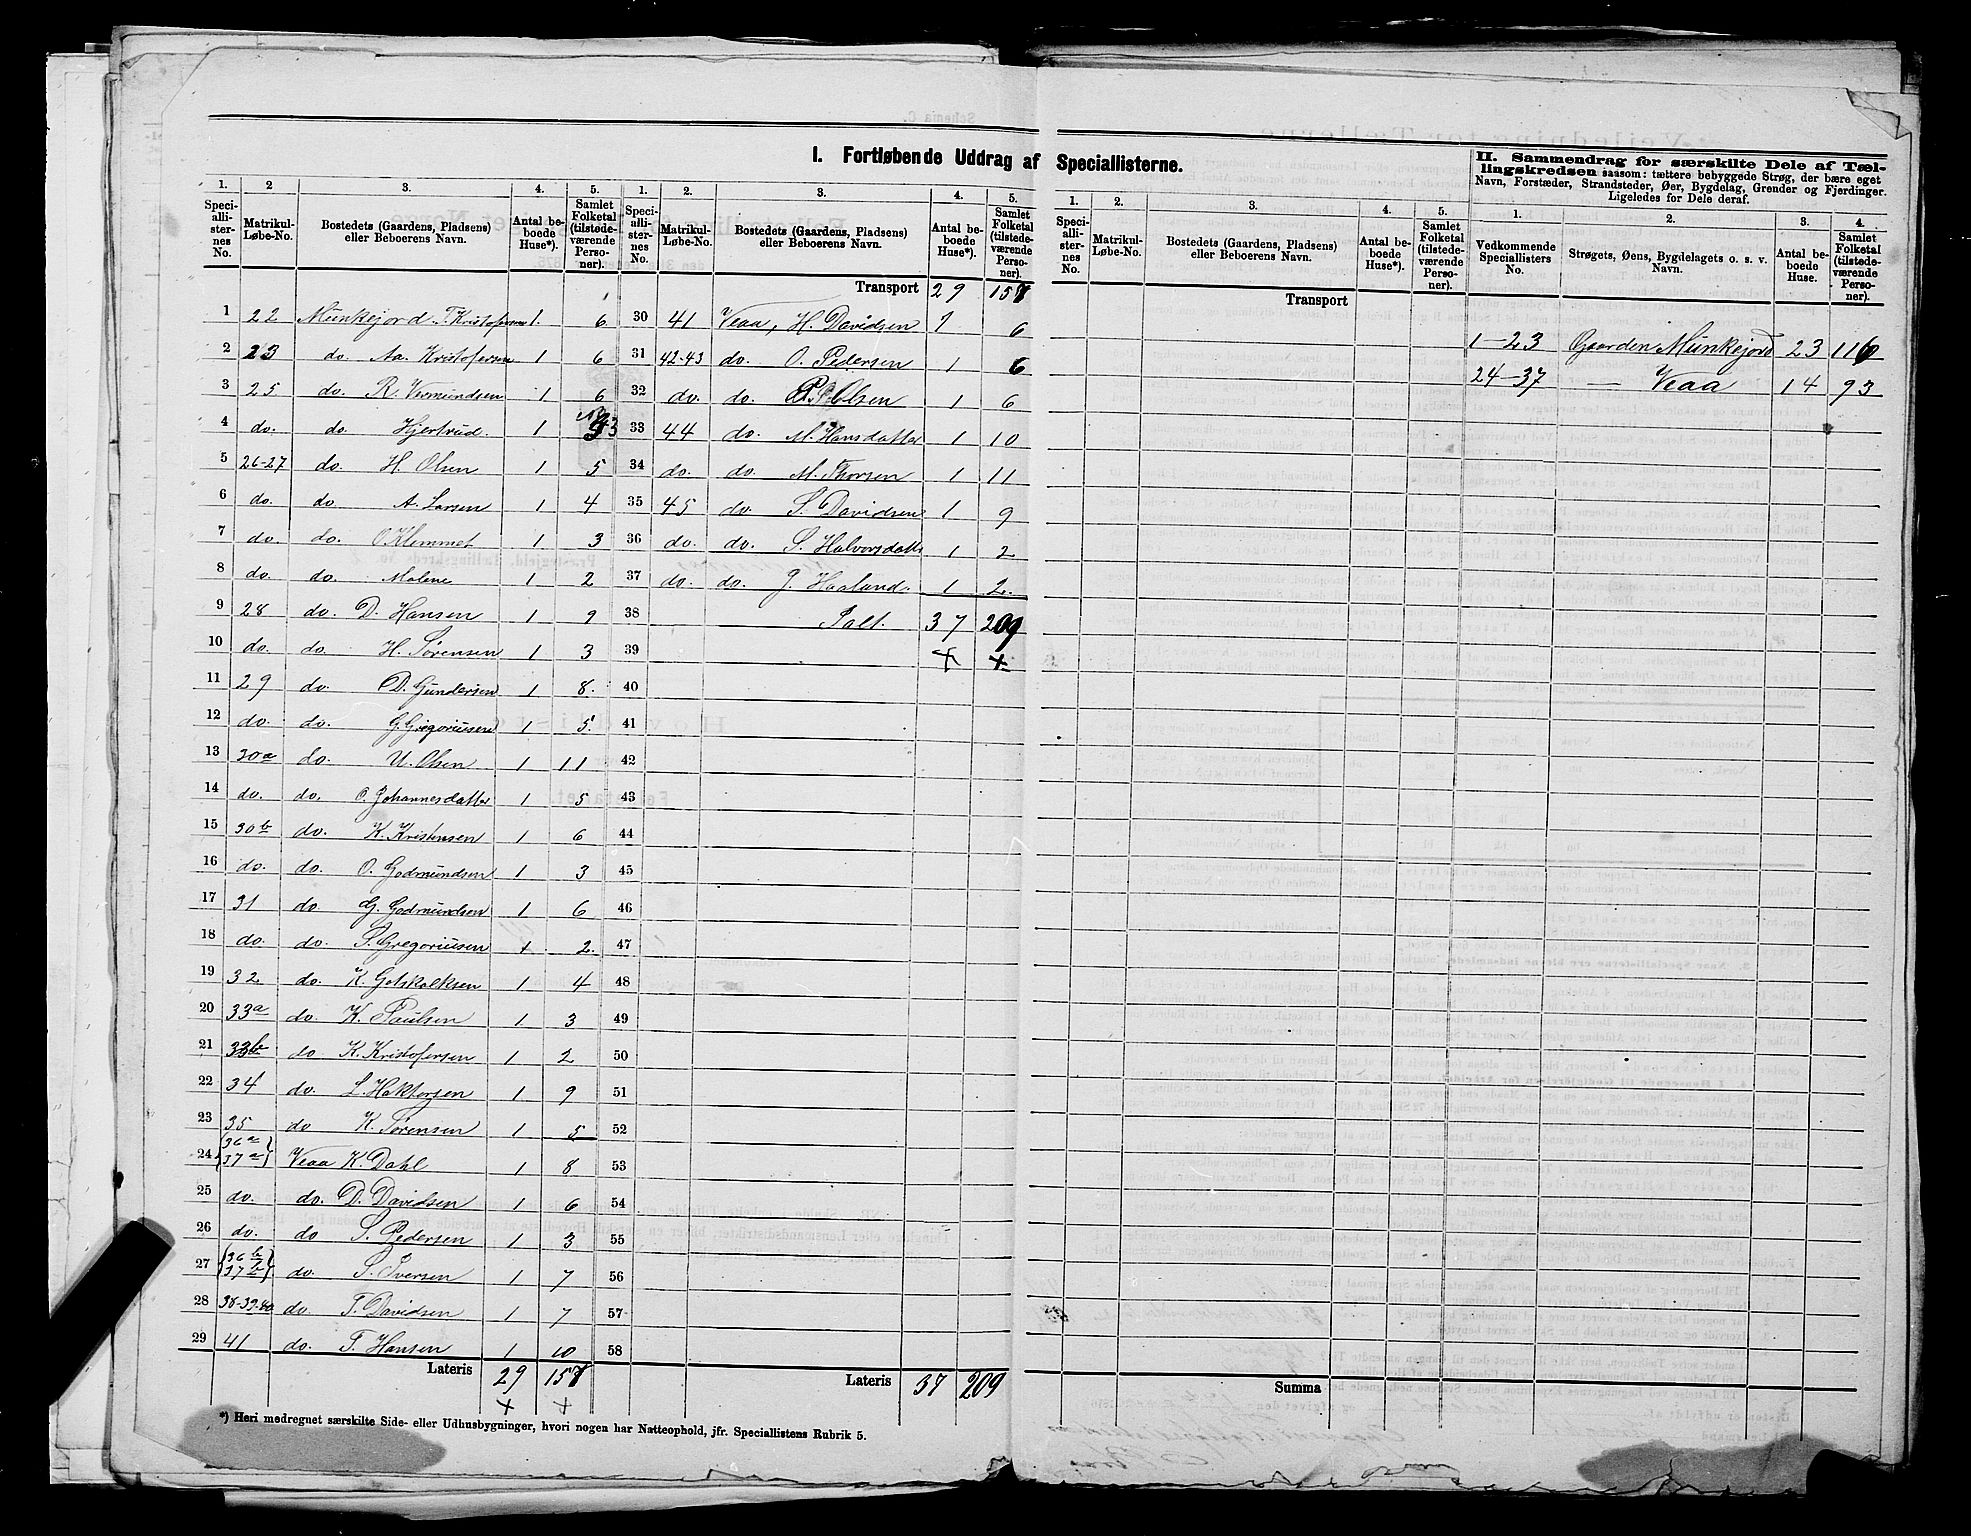 I. Fortløbende Uddrag af Speciallisterne.
II. Sammendrag for særskilte Dele af Tællingskredsen saasom: tættere bebyggede Strøg, der bære eget Navn, Forstæder, Strandsteder, Øer, Bygdelag, Grender og Fjerdinger. Ligeledes for Dele deraf.
1. 2 3. 4. 5. 1. 2. 3. 4. 5. 1. 2. 3. 4. 5. 1. 2. 3. 4.
Speciallisternes No. Matrikul-Løbe-No. Bostedets (Gaardens, Pladsens) eller Beboerens Navn. Antal beboede Huse*). Samlet Folketal (tilstedeværende Personer).
Speciallisternes No. Matrikul-Løbe-No. Bostedets (Gaardens, Pladsens) eller Beboerens Navn. Antal beboede Huse*). Samlet Folketal (tilstedeværende Personer).
Speciallisternes No. Matrikul-Løbe-No. Bostedets (Gaardens, Pladsens) eller Beboerens Navn. Antal beboede Huse*). Samlet Folketal (tilstedeværende Personer).
Vedkommende Speciallisters No. Strøgets, Øens, Bygdelagets o. s. v. Navn. Antal beboede Huse. Samlet Folketal (tilstedeværende Personer).
1 22 Munkejord T. Kristofersen 1 6
2 23 do. Aa. Kristofersen 1 6
3 25 do. R. Vermundsen 1 6
4 do. do. Hjertrud. 1 3
5 26-27 do. H. Olsen 1 5
6 do. do A. Larsen 1 4
7 do. do. O. Klemmet 1 3
8 do. do. Malene 1 2
9 28 do. D. Hansen 1 9
10 do. do. H. Sørensen 1 3
11 29 do. D. Gundersen 1 8.
12 do. do. G. Gregoriusen 1 5
13 30a do. U. Olsen 1 11
14 do. do. O. Johannesdatter 1 5
15 30b do. K. Kristensen 1 6
16 do. do. O. Godmundsen 1 3
17 31 do G. Godmundsen 1 6
18 do. do. P. Gregoriusen + 2.
19 32. do. K. Gotskalksen 1 4
20 33a do. K. Paulsen 1 3
21 33b do. K. Kristofersen 1 2
22 34 do. L. Haktorsen 1 9
23 35 do K. Sørensen 1 5
24 {36a 37a} Veaa K. Dahl 1 8
25 do. do. D. Davidsen 1 6
26 do. do S. Pedersen 1 3
27 {36b 37b} do. S. Iversen 1 7
28 38-39-40 do. T. Davidsen 1 7
29 41 do. T. Hansen 1 10
Lateris 29 157
+ +
Transport 29 157
30 41 Veaa, H. Davidsen 1 6
31 42-43 do. O. Pedersen 1 6
32 do. do. P. Olsen 1 6
33 44 do. M. Hansdatter 1 10
34 do. do. M. Thorsen 1 11
35 45 do. S. Davidsen 1 9
36 do. do. S. Halvorsdatter 1 2
37 do. do. J. Haaland. 1 2.
38 Ialt. 37 209
39 + +
40
41
42
43
44
45
46
47
48
49
50
51
52
53
54
55
56
57
58
Lateris 37 209
Transport
Summa
1-23 Gaarden Munkejord 23 116
24-37 — Veaa 14 93
*) Heri medregnet særskilte Side- eller Udhusbygninger, hvori nogen har Natteophold, jfr. Speciallistens Rubrik 5.